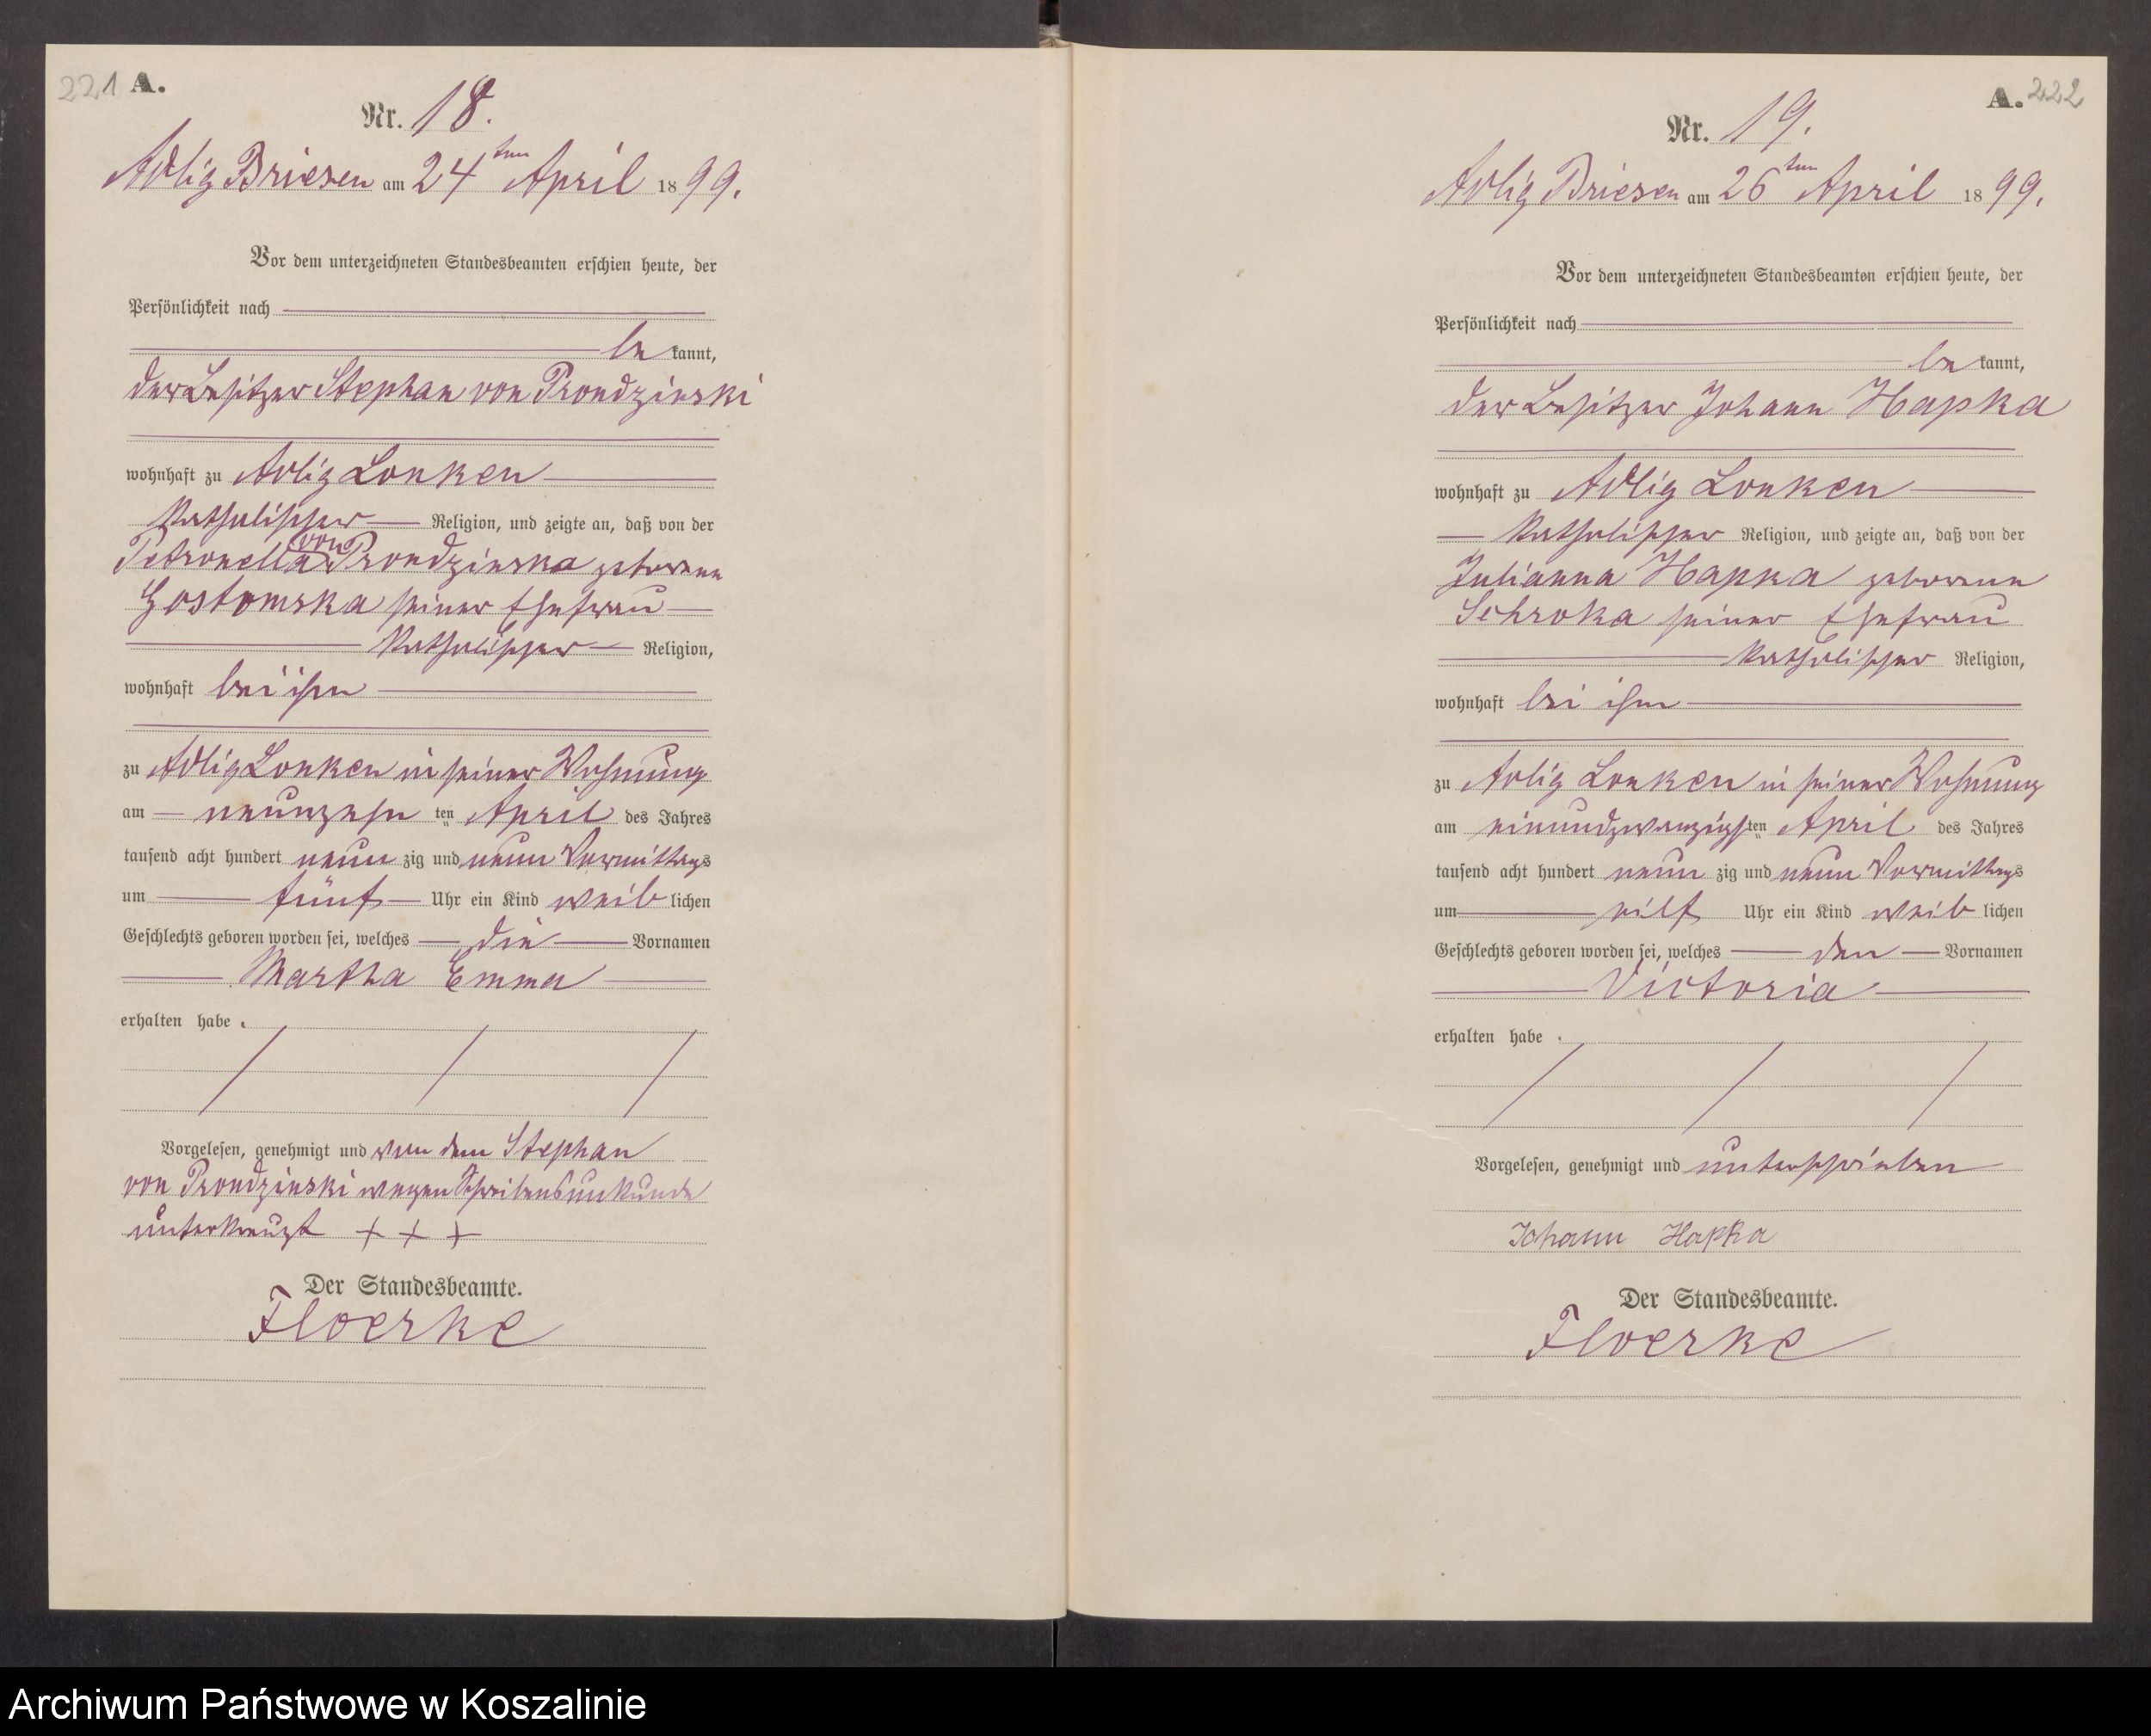 221 A.
Nr. 18.
Adlig Briesen am 24ten April 1899.
Vor dem unterzeichneten Standesbeamten erschien heute, der
Persönlichkeit nach
be kannt,
der Besitzer Stephan von Prondzinski
wohnhaft zu Adlig Lonken
katholischer Religion, und zeigte an, daß von der
Petronella von Prondzinska geborene
Gostomska seiner Ehefrau
katholischer Religion,
wohnhaft bei ihm
zu Adlig Lonken in seiner Wohnung
am neunzehn ten April des Jahres
tausend acht hundert neun zig und neun Vormittags
um fünf Uhr ein Kind weib lichen
Geschlechts geboren worden sei, welches die Vornamen
Martha Emma
erhalten habe.
Vorgelesen, genehmigt und von dem Stephan
von Prondzinski wegen Schreibensunkunde
unterkreuzt + + +
Der Standesbeamte.
Floerke
A. 222
Nr. 19.
Adlig Briesen am 26ten April 1899.
Vor dem unterzeichneten Standesbeamten erschien heute, der
Persönlichkeit nach
be kannt,
der Besitzer Johann Hapka
wohnhaft zu Adlig Lonken
katholischer Religion, und zeigte an, daß von der
Julianna Hapka geborene
Schroka seiner Ehefrau
katholischer Religion,
wohnhaft bei ihm
zu Adlig Lonken in seiner Wohnung
am einundzwanzigsten April des Jahres
tausend acht hundert neun zig und neun Vormittags
um eilf Uhr ein Kind weib lichen
Geschlechts geboren worden sei, welches den Vornamen
Victoria
erhalten habe.
Vorgelesen, genehmigt und unterschrieben
Johann Hapka
Der Standesbeamte.
Floerke
Archiwum Państwowe w Koszalinie